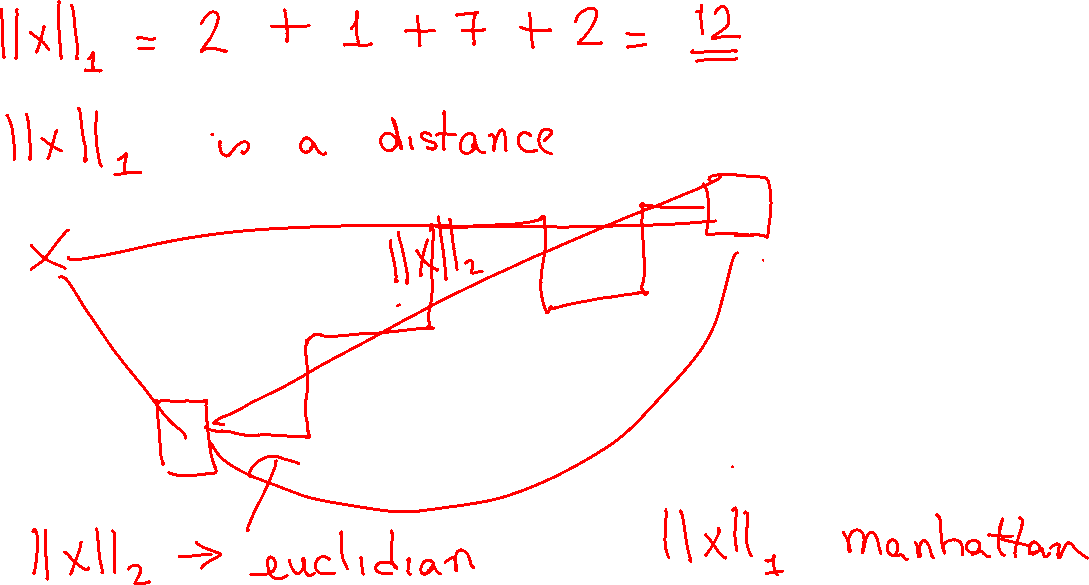 ||x||₁ = 2 + 1 + 7 + 2 = 12
||x||₁ is a distance
X
||x||₂
||x||₂ → euclidian
||x||₁ manhattan